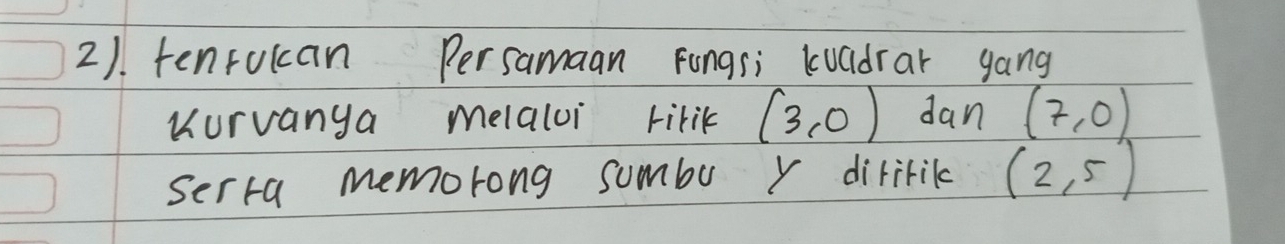 2). tentukan Persamaan Fungsi kuadrat yang
Kurvanya melalui titik (3,0) dan (7,0)
serta memotong sumbu y dititik (2,5)